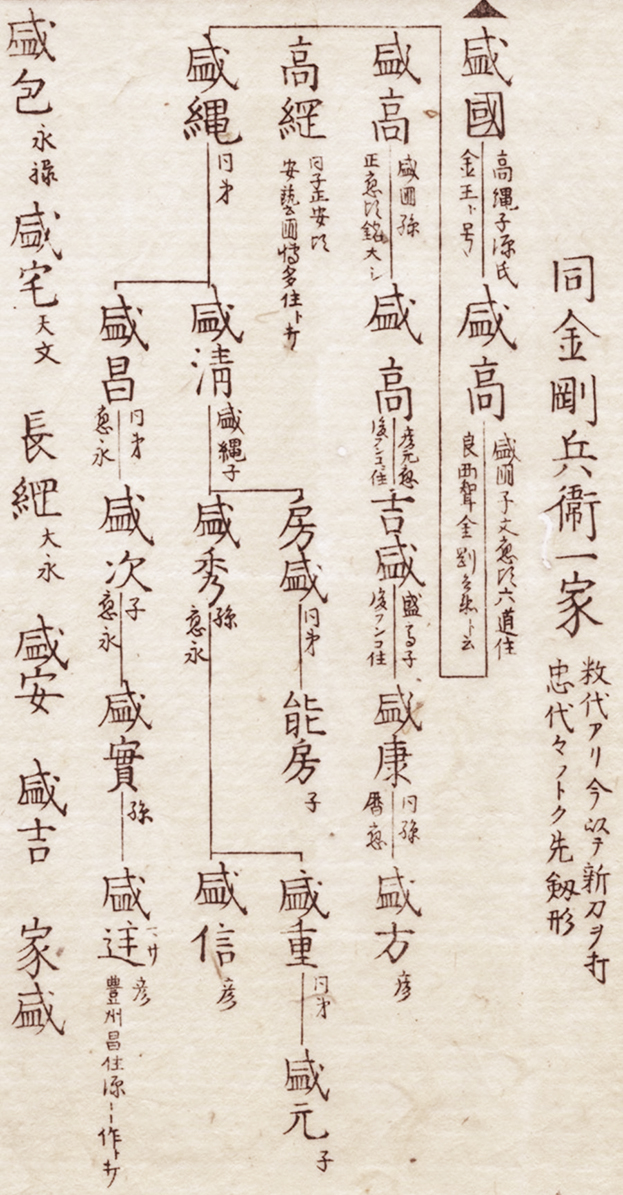 同金剛兵衛一家
数代アリ今以テ新刀ヲ打
忠代々ノトク先劔形
盛國
高縄子源氏
金王ト号
盛高
盛國子文應比六道住
盛高
盛國孫
正應比銘大シ
盛高
彦元應
吉盛
盛高子
盛康
同孫
暦應
盛方
彦
高綱
同子正安比
安藝國博多住ト打
盛縄
同弟
盛清
盛縄子
房盛
同弟
能房
子
盛秀
孫
應永
盛重
同弟
盛元
子
盛信
彦
盛昌
同弟
應永
盛次
子
應永
盛實
孫
盛廷
彦
豊州昌住源ーー作ト打
盛包
永禄
盛宅
天文
長綱
大永
盛安
盛吉
家盛